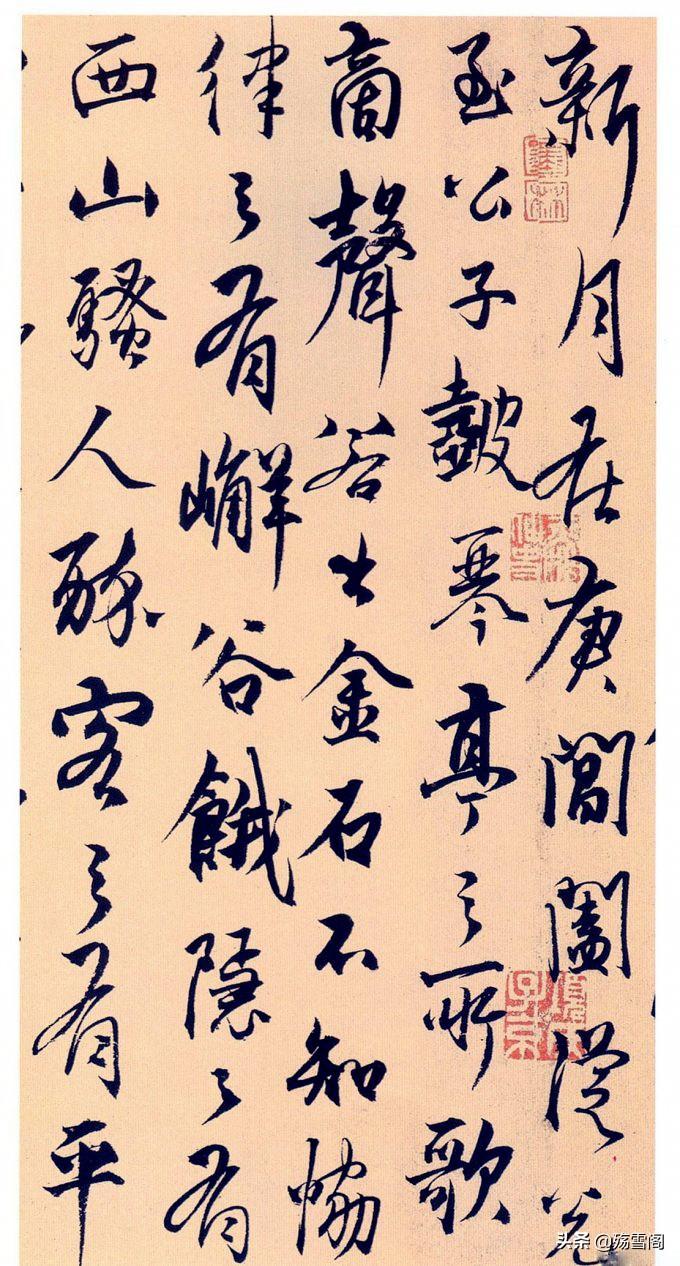 新月在庚閶闔
至公子皷琴亭之所歌
商聲若出金石不知協
律之有嶰谷餓隱之有
西山騷人醉客之有平
头条 @殇雪阁